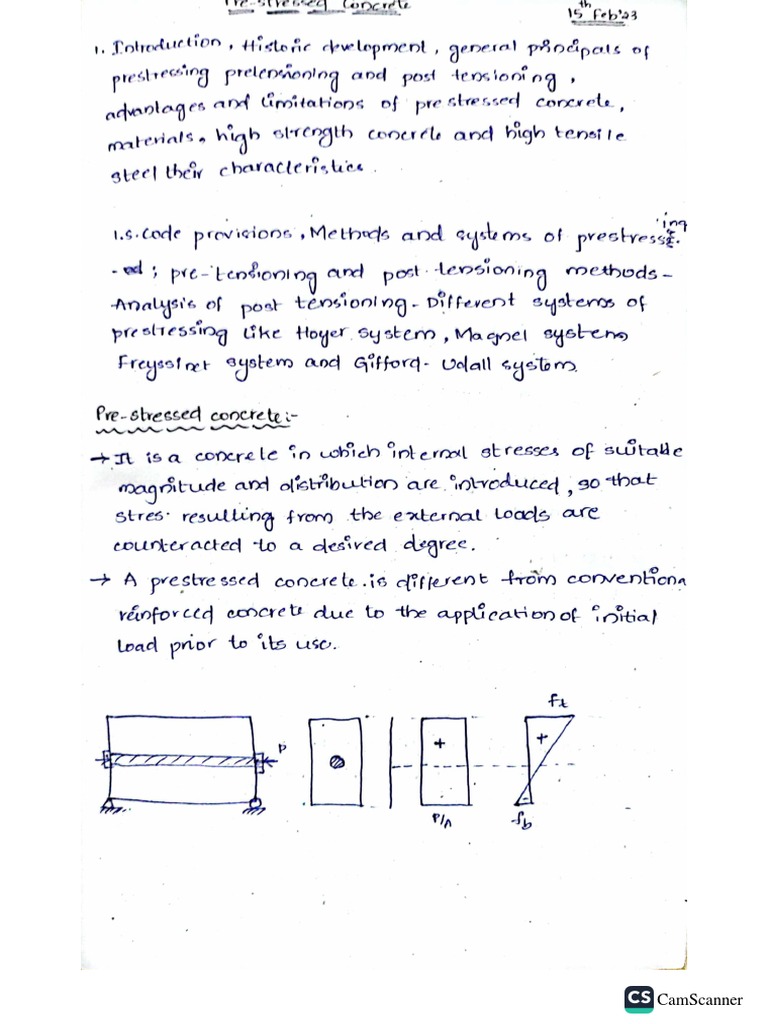 Pre-stressed Concrete
15th Feb'23
1. Introduction, Historic development, general principals of
prestressing pretensioning and post tensioning,
advantages and limitations of prestressed concrete,
materials, high strength concrete and high tensile
steel their characteristics.
I.S. code provisions, Methods and systems of prestressing.
-ed; pre-tensioning and post-tensioning methods-
Analysis of post tensioning- Different systems of
prestressing like Hoyer system, Magnel system
Freyssinet system and Gifford-Udall system.
Pre-stressed concrete:-
→ It is a concrete in which internal stresses of suitable
magnitude and distribution are introduced, so that
stres. resulting from the external loads are
counteracted to a desired degree.
→ A prestressed concrete is different from convention
reinforced concrete due to the application of initial
load prior to its use.
ft
P
+
+
-
P/A
fb
CS CamScanner